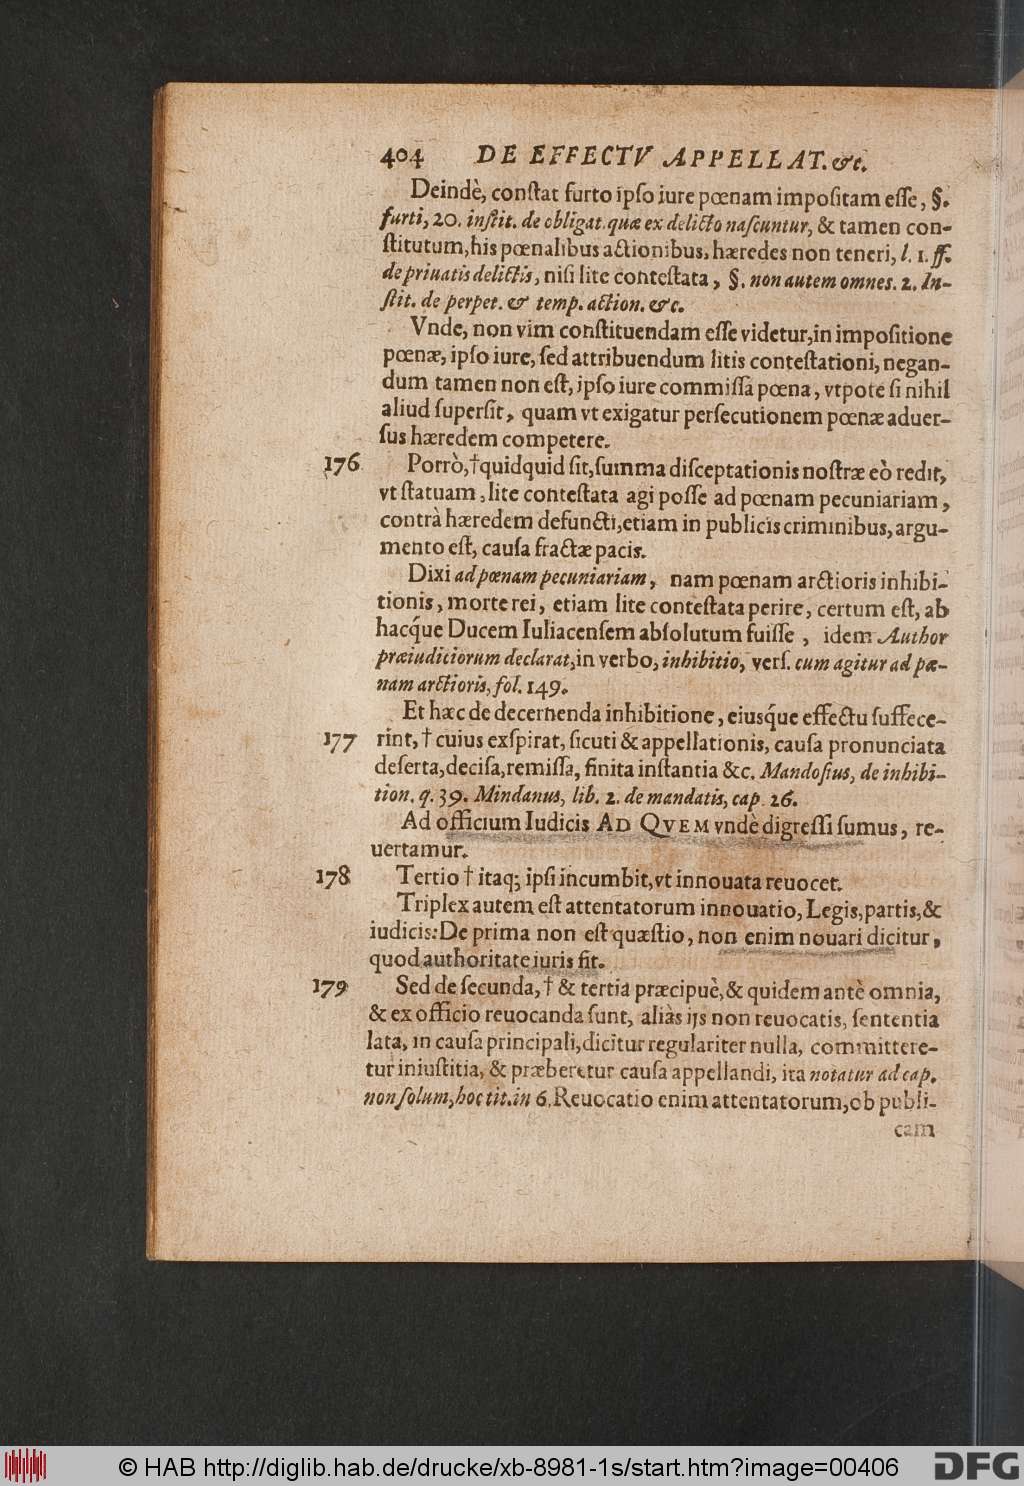 404 DE EFFECTV APPELLAT. &c.
Deindè, conſtat furto ipſo iure pœnam impoſitam eſſe, §.
furti, 20. inſtit. de obligat. quæ ex delicto naſcuntur, & tamen con-
ſtitutum, his pœnalibus actionibus, hæredes non teneri, l. 1. ff.
de priuatis delictis, niſi lite conteſtata, §. non autem omnes. 2. In-
ſtit. de perpet. & temp. action. &c.
Vnde, non vim conſtituendam eſſe videtur, in impoſitione
pœnæ, ipſo iure, ſed attribuendum litis conteſtationi, negan-
dum tamen non eſt, ipſo iure commiſſa pœna, vtpote ſi nihil
aliud ſuperſit, quam vt exigatur perſecutionem pœnæ aduer-
ſus hæredem competere.
176 Porrò, † quidquid ſit, ſumma diſceptationis noſtræ eò redit,
vt ſtatuam, lite conteſtata agi poſſe ad pœnam pecuniariam,
contrà hæredem defuncti, etiam in publicis criminibus, argu-
mento eſt, cauſa fractæ pacis.
Dixi ad pœnam pecuniariam, nam pœnam arctioris inhibi-
tionis, morte rei, etiam lite conteſtata perire, certum eſt, ab
hacq́ue Ducem Iuliacenſem abſolutum fuiſſe, idem Author
præiudiciorum declarat, in verbo, inhibitio, verſ. cum agitur ad pœ-
nam arctioris, fol. 149.
Et hæc de decernenda inhibitione, eiusq́ue effectu ſuffece-
177 rint, † cuius exſpirat, ſicuti & appellationis, cauſa pronunciata
deſerta, deciſa, remiſſa, finita inſtantia &c. Mandoſius, de inhibi-
tion. q. 39. Mindanus, lib. 2. de mandatis, cap. 26.
Ad officium Iudicis AD QVEM vndè digreſſi ſumus, re-
uertamur.
178 Tertio † itaq; ipſi incumbit, vt innouata reuocet.
Triplex autem eſt attentatorum innouatio, Legis, partis, &
iudicis: De prima non eſt quæſtio, non enim nouari dicitur,
quod authoritate iuris fit.
179 Sed de ſecunda, † & tertia præcipuè, & quidem antè omnia,
& ex officio reuocanda ſunt, aliàs ijs non reuocatis, ſententia
lata, in cauſa principali, dicitur regulariter nulla, committere-
tur iniuſtitia, & præberetur cauſa appellandi, ita notatur ad cap.
non ſolum, hoc tit. in 6. Reuocatio enim attentatorum, ob publi-
cam
© HAB http://diglib.hab.de/drucke/xb-8981-1s/start.htm?image=00406
DFG